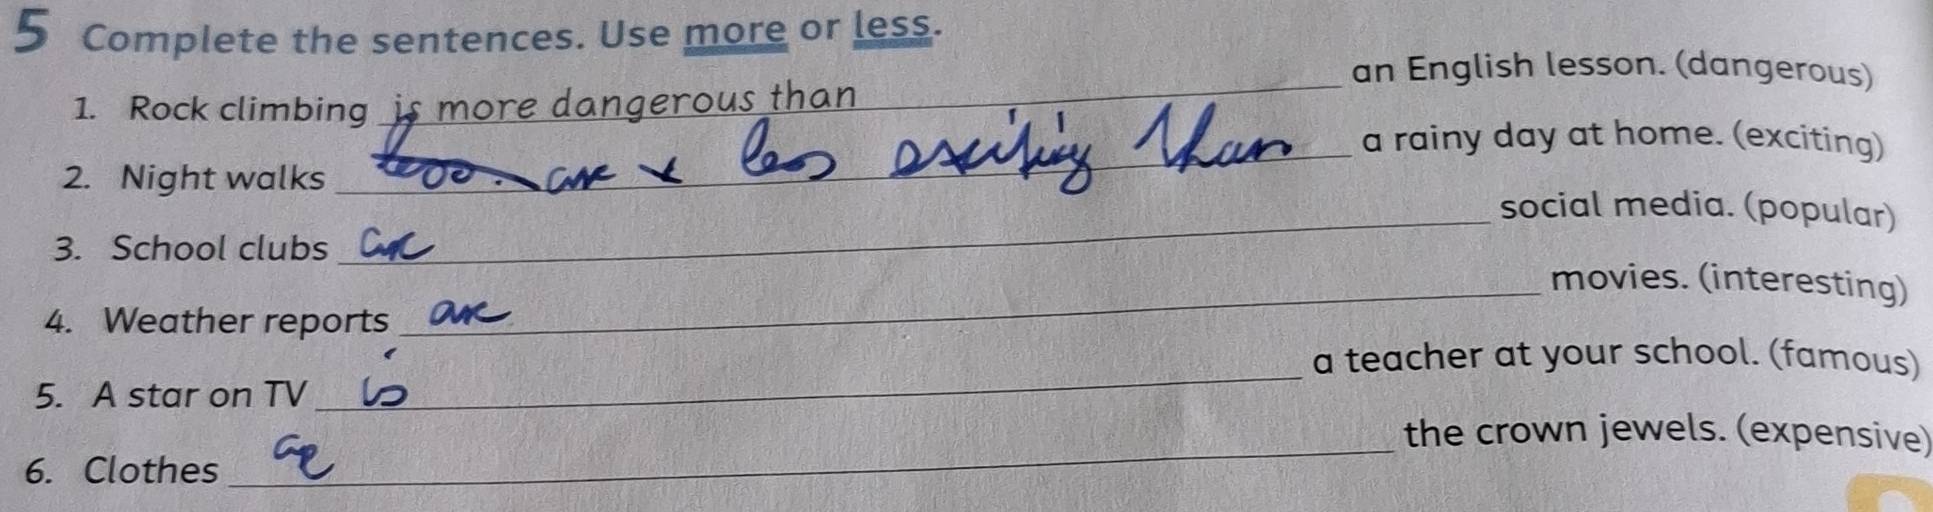 5 Complete the sentences. Use more or less.
1. Rock climbing is more dangerous than an English lesson. (dangerous)
2. Night walks are less exciting than a rainy day at home. (exciting)
3. School clubs are social media. (popular)
4. Weather reports are movies. (interesting)
5. A star on TV is a teacher at your school. (famous)
6. Clothes are the crown jewels. (expensive)